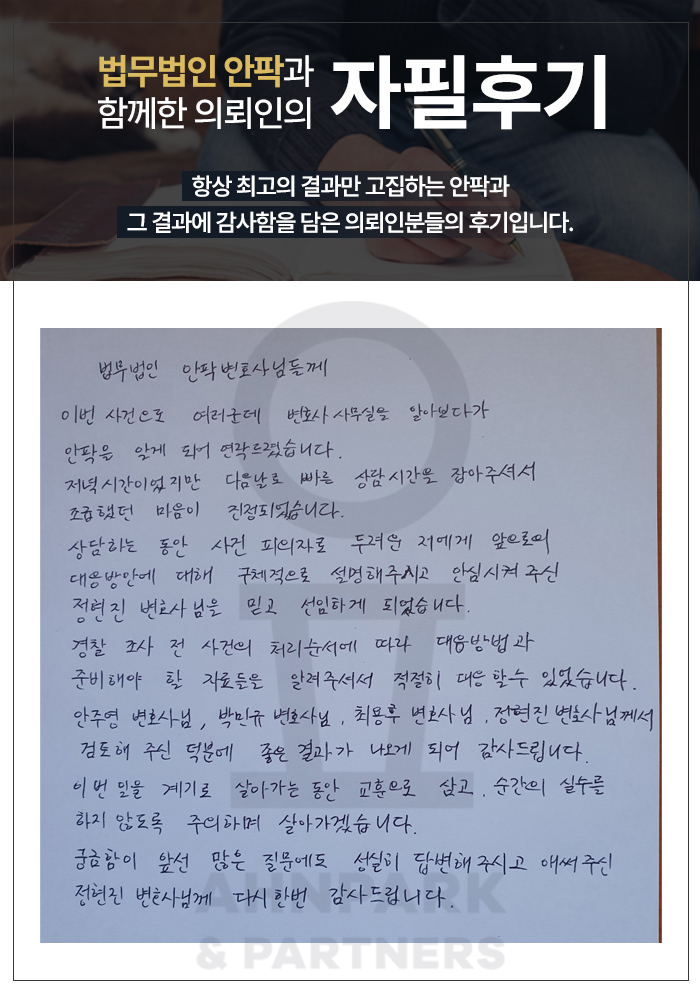 법무법인 안팍과
함께한 의뢰인의
자필후기
항상 최고의 결과만 고집하는 안팍과
그 결과에 감사함을 담은 의뢰인분들의 후기입니다.
법무법인 안팍 변호사님들께
이번 사건으로 여러군데 변호사 사무실을 알아보다가
안팍을 알게 되어 연락드렸습니다.
저녁시간이었지만 다음날로 빠른 상담시간을 잡아주셔서
조급했던 마음이 진정되었습니다.
상담하는 동안 사건 피의자로 두려운 저에게 앞으로의
대응방안에 대해 구체적으로 설명해주시고 안심시켜 주신
정현진 변호사님을 믿고 선임하게 되었습니다.
경찰 조사 전 사건의 처리순서에 따라 대응방법과
준비해야 할 자료들을 알려주셔서 적절히 대응할수 있었습니다.
안주영 변호사님, 박민규 변호사님, 최용후 변호사님, 정현진 변호사님께서
검토해 주신 덕분에 좋은 결과가 나오게 되어 감사드립니다.
이번 일을 계기로 살아가는 동안 교훈으로 삼고, 순간의 실수를
하지 않도록 주의하며 살아가겠습니다.
궁금함이 앞선 많은 질문에도 성실히 답변해주시고 애써주신
정현진 변호사님께 다시한번 감사드립니다.
AHNPARK
& PARTNERS